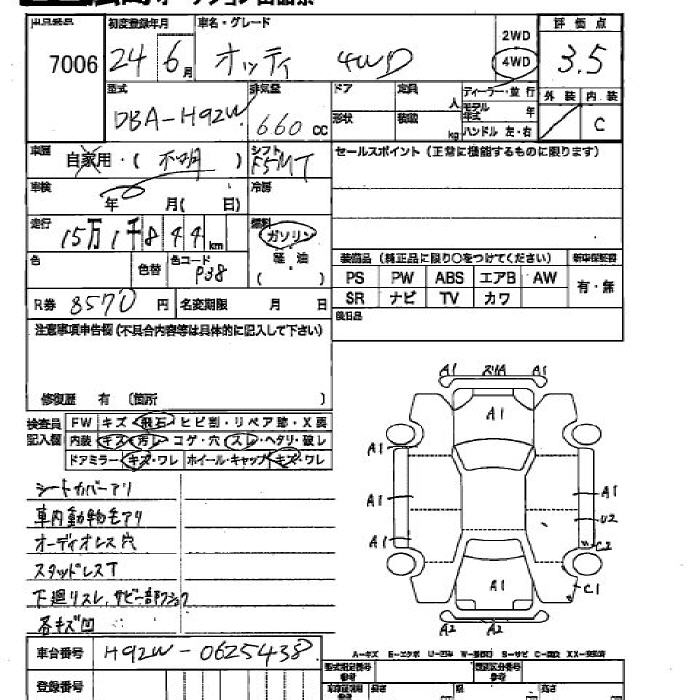 出品番号 初度登録年月 車名・グレード 評価点
7006 24 6月 オッティ 4WD 2WD 4WD 3.5
型式 排気量 ドア 定員 人 ディーラー・並行 外装 内装
DBA-H92W 660cc 形状 積載 kg モデル年式 年 C
ハンドル 左・右
車歴 自家用・( 不明 ) シフト F5MT セールスポイント (正常に機能するものに限ります)
車検 年 月( 日) 冷房
走行 15万1千844km 燃料 ガソリン
軽油
( )
色 色替 色コード P38 装備品 (純正品に限り○をつけてください) 新車保証書
PS PW ABS エアB AW 有・無
R券 8570円 名変期限 月 日 SR ナビ TV カワ
後日品
注意事項申告欄 (不具合内容等は具体的に記入して下さい)
修復歴 有 (箇所 )
検査員 FW キズ・飛石・ヒビ割・リペア跡・X要
記入欄 内装 キズ・汚レ・コゲ・穴 スレ・ヘタリ・破レ
ドアミラー・キズ・ワレ ホイール・キャップ・キズ・ワレ
シートカバーアリ
車内動物毛アリ
オーディオレス穴
スタッドレスT
下廻リスレ、サビ一部
各キズ凹
A1 A1
A1
A1
A1 A1
U2
A1 C2
A1 C1
A2 A2
車台番号 H92W-0625438
A-キズ E-エクボ U-凹み S-サビ
登録番号 型式指定番号 類別区分番号
長さ 幅 高さ